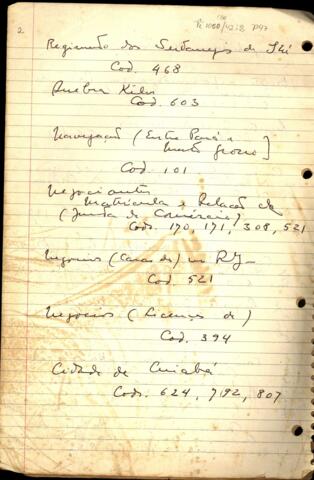 2
Pi 1080/42:8 P47
Regimento dos Sertanejos de
Cod. 468
Quebra Kilos
Cod. 603
Navegação (Entre Pará e
Mato Grosso]
Cod. 101
Negociantes
Matricula e Relação de
(Junta do Comércio)
Cods. 170, 171, 308, 521
Negocios (Casas de) no RJ-
Cod. 521
Negocios (Licenças de)
Cod. 394
Cidade de Cuiabá
Cods. 624, 792, 807